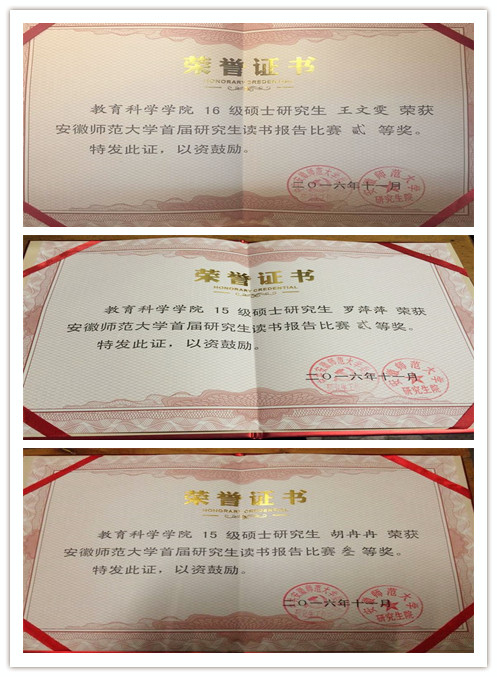 荣誉证书
HONORARY CREDENTIAL
教育科学学院 16 级硕士研究生 王文雯 荣获
安徽师范大学首届研究生读书报告比赛 贰 等奖。
特发此证，以资鼓励。
二〇一六年十一月
安徽师范大学
研究生院
荣誉证书
HONORARY CREDENTIAL
教育科学学院 15 级硕士研究生 罗萍萍 荣获
安徽师范大学首届研究生读书报告比赛 贰 等奖。
特发此证，以资鼓励。
二〇一六年十一月
安徽师范大学
研究生院
荣誉证书
HONORARY CREDENTIAL
教育科学学院 15 级硕士研究生 胡冉冉 荣获
安徽师范大学首届研究生读书报告比赛 叁 等奖。
特发此证，以资鼓励。
二〇一六年十一月
安徽师范大学
研究生院